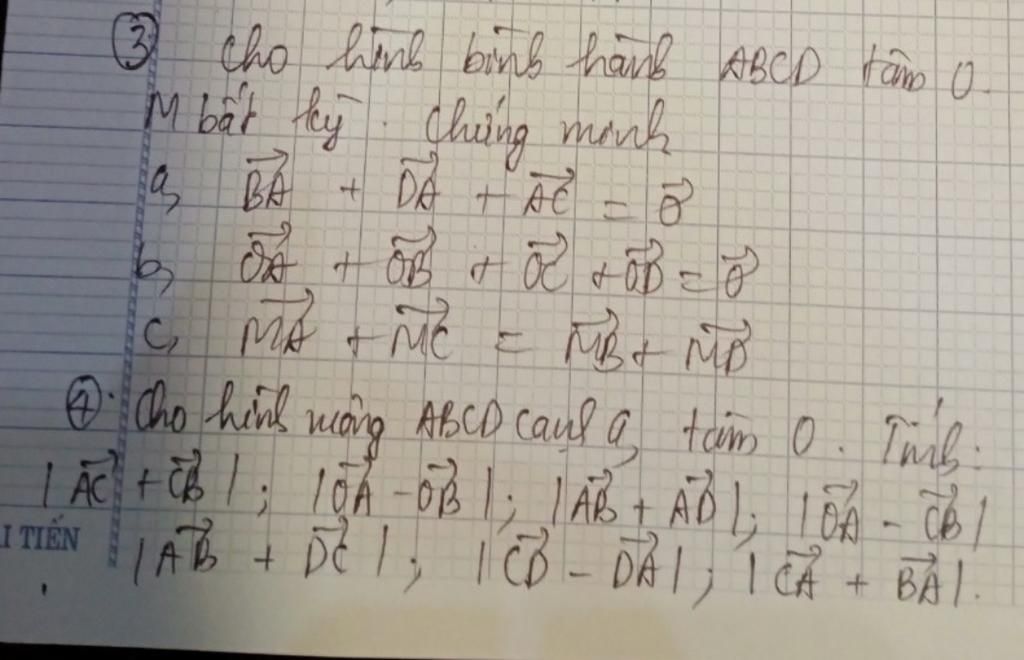 ③ Cho hình bình hành ABCD tâm O.
M bất kỳ. Chứng minh
a, $\overrightarrow{BA}$ + $\overrightarrow{DA}$ + $\overrightarrow{AC}$ = $\vec{0}$
b, $\overrightarrow{OA}$ + $\overrightarrow{OB}$ + $\overrightarrow{OC}$ + $\overrightarrow{OD}$ = $\vec{0}$
c, $\overrightarrow{MA}$ + $\overrightarrow{MC}$ = $\overrightarrow{MB}$ + $\overrightarrow{MD}$
④. Cho hình vuông ABCD cạnh a, tâm O. Tính:
|$\overrightarrow{AC}$ + $\overrightarrow{CB}$|; |$\overrightarrow{OA}$ - $\overrightarrow{OB}$|; |$\overrightarrow{AB}$ + $\overrightarrow{AD}$|; |$\overrightarrow{OA}$ - $\overrightarrow{CB}$|
I TIẾN
|$\overrightarrow{AB}$ + $\overrightarrow{DC}$|; |$\overrightarrow{CD}$ - $\overrightarrow{DA}$|; |$\overrightarrow{CA}$ + $\overrightarrow{BA}$|.